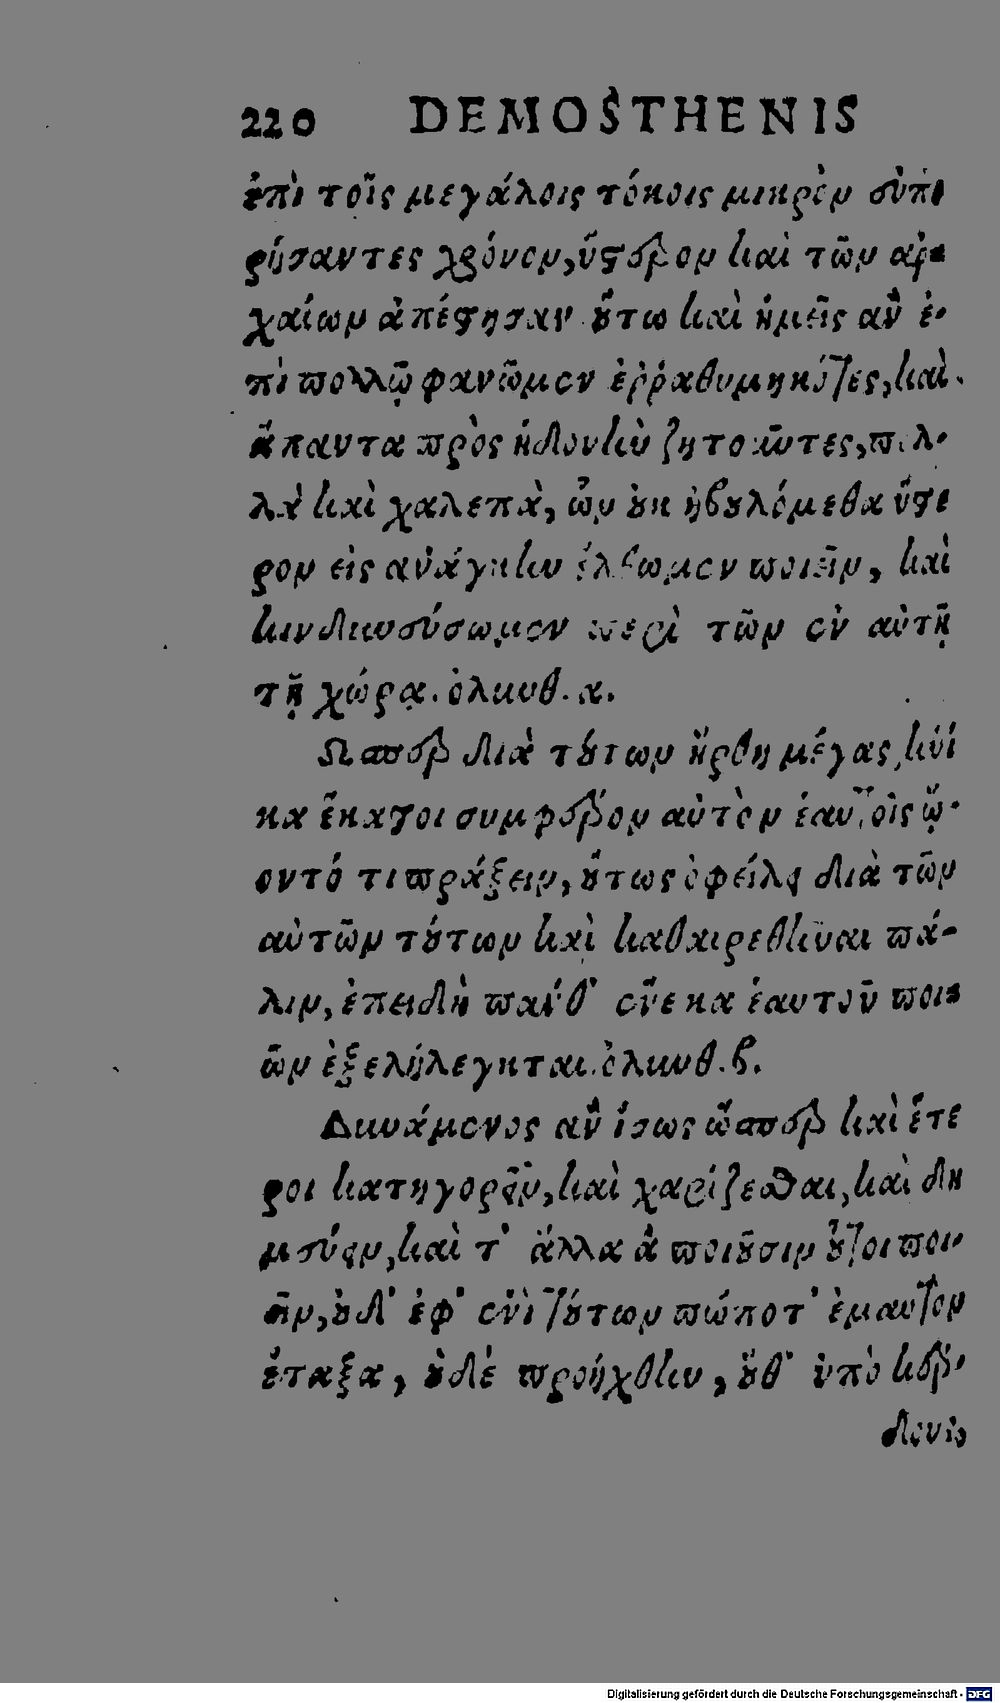 220 DEMOSTHENIS
ἐπὶ τοῖς μεγάλοις τόκοις μικρὸν εὐπο
ρήσαντες χρόνον, ὕστερον καὶ τῶν αρ-
χαίων ἀπέστησαν. οὕτω καὶ ἡμεῖς ἂν ἐ-
πὶ πολλῷ φανῶμεν ἐρραθυμηκότες, καὶ
ἅπαντα πρὸς ἡδονὴν ζητοῦντες, πολ-
λὰ καὶ χαλεπὰ, ὧν οὐκ ἠβουλόμεθα ὕστε
ρον εἰς ανάγκην ἔλθωμεν ποιεῖν, καὶ
κινδυνεύσωμεν περὶ τῶν ἐν αὐτῇ
τῇ χώρᾳ. ὀλυνθ. α.
Ωσπερ διὰ τούτων ἤρθη μέγας, ἡνί
κα ἕκαστοι συμφέρον αὐτὸν ἑαυτοῖς ᾤ-
οντό τι πράξειν, οὕτως ὀφείλει διὰ τῶν
αὐτῶν τούτων καὶ καθαιρεθῆναι πά-
λιν, ἐπειδὴ πανθ' ἕνεκα ἑαυτοῦ ποι-
ῶν ἐξελήλεγκται. ὀλυνθ. β.
Δυνάμενος ἂν ἴσως ὥσπερ καὶ ἕτε
ροι κατηγορεῖν, καὶ χαρίζεσθαι, καὶ δη
μεύειν, καὶ τ' ἄλλα ἃ ποιοῦσιν οὗτοι ποι-
εῖν, οὐδ' ἐφ' ἑνὶ τούτων πώποτ' ἐμαυτὸν
ἔταξα, οὐδὲ προήχθην, οὔθ' ὑπὸ κέρ-
δους
Digitalisierung gefördert durch die Deutsche Forschungsgemeinschaft - DFG